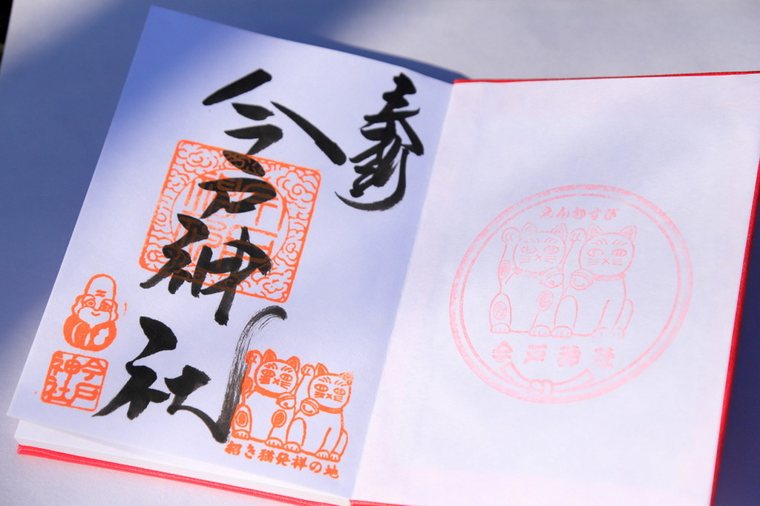 奉拝
今戸神社
今戸
神社
招き猫発祥の地
えんむすび
今戸神社